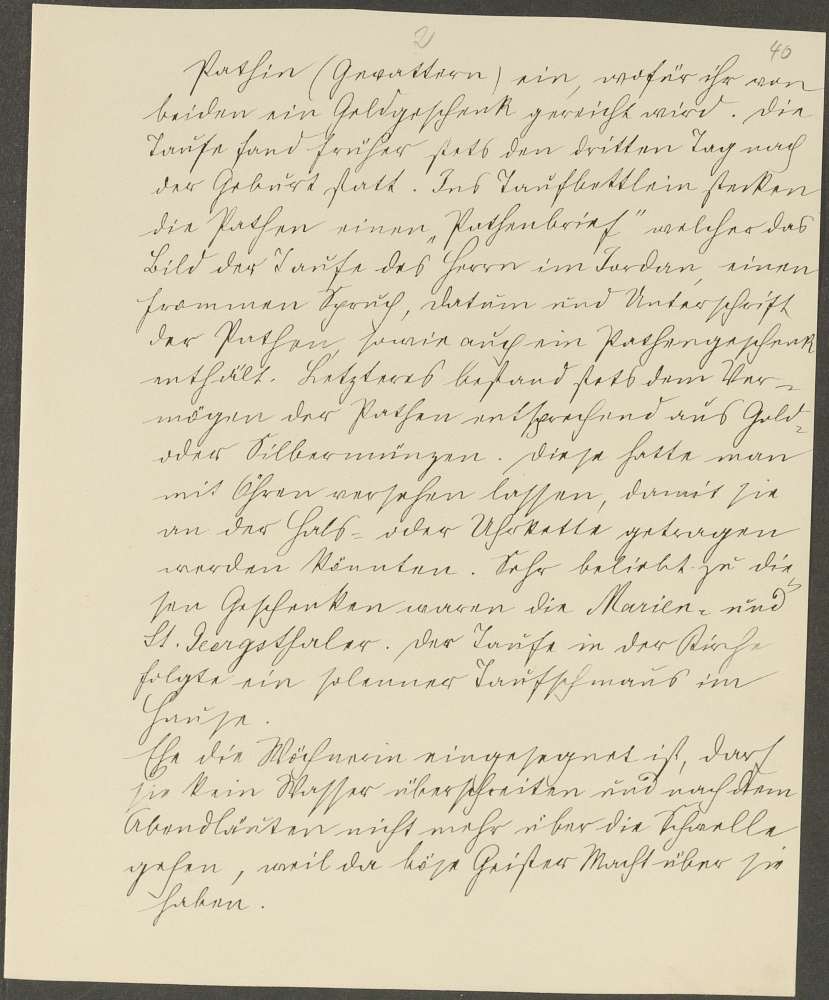 2
40
Pathin (Gevattern) ein, wofür ihr von
beiden ein Geldgeschenk gereicht wird. Die
Taufe fand früher stets den dritten Tag nach
der Geburt statt. Ins Taufbettlein stecken
die Pathen einen „Pathenbrief" welcher das
Bild der Taufe des Herrn im Jordan, einen
frommen Spruch, Datum und Unterschrift
der Pathen, sowie auch ein Pathengeschenk
enthält. Letzteres bestand stets dem Ver=
mögen der Pathen entsprechend aus Gold=
oder Silbermünzen. Diese hatte man
mit Öhren versehen lassen, damit sie
an der Hals= oder Uhrkette getragen
werden könnten. Sehr beliebt zu die=
sen Geschenken waren die Marien= und
St. Georgsthaler. Der Taufe in der Kirche
folgte ein solenner Taufschmaus im
Hause.
Ehe die Wöchnerin eingesegnet ist, darf
sie kein Wasser überschreiten und nach dem
Abendläuten nicht mehr über die Schwelle
gehen, weil da böse Geister Macht über sie
haben.